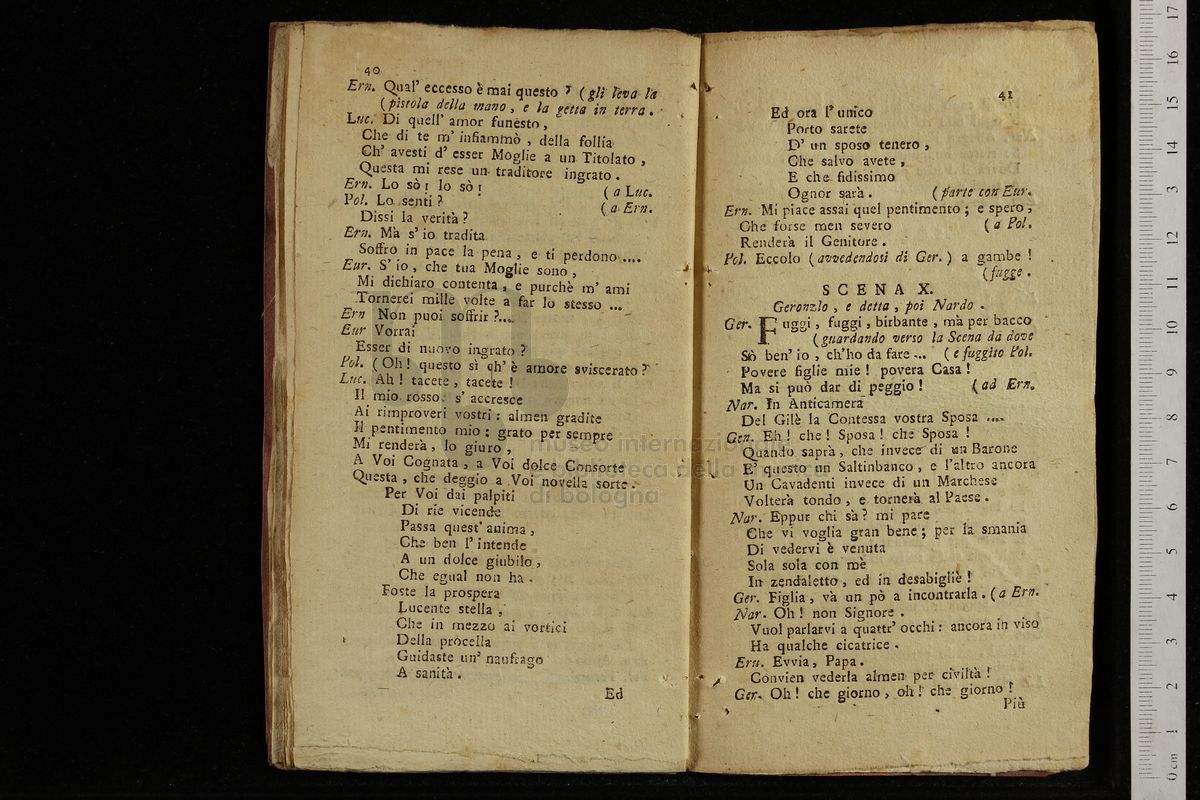 40
Ern. Qual' eccesso è mai questo ? ( gli leva la
( pistola della mano , e la getta in terra .
Luc. Di quell' amor funesto ,
Che di te m' infiammò , della follia
Ch' avesti d' esser Moglie a un Titolato ,
Questa mi rese un traditore ingrato .
Ern. Lo sò ! lo sò ! ( a Luc.
Pol. Lo senti ? ( a Ern.
Dissi la verità ?
Ern. Mà s' io tradita
Soffro in pace la pena , e ti perdono ....
Eur. S' io , che tua Moglie sono ,
Mi dichiaro contenta , e purchè m' ami
Tornerei mille volte a far lo stesso ...
Ern Non puoi soffrir ?...
Eur Vorrai
Esser di nuovo ingrato ?
Pol. ( Oh ! questo si ch' è amore sviscerato ?
Luc. Ah ! tacete , tacete !
Il mio rosso s' accresce
Ai rimproveri vostri : almen gradite
Il pentimento mio ; grato per sempre
Mi renderà , lo giuro ,
A Voi Cognata , a Voi dolce Consorte
Questa , che deggio a Voi novella sorte .
Per Voi dai palpiti
Di rie vicende
Passa quest' anima ,
Che ben l' intende
A un dolce giubilo ,
Che egual non ha .
Foste la prospera
Lucente stella ,
Che in mezzo ai vortici
Della procella
Guidaste un' naufrago
A sanità .
Ed
41
Ed ora l' unico
Porto sarete
D' un sposo tenero ,
Che salvo avete ,
E che fidissimo
Ognor sarà . ( parte con Eur.
Ern. Mi piace assai quel pentimento ; e spero ,
Che forse men severo ( a Pol.
Renderà il Genitore .
Pol. Eccolo ( avvedendosi di Ger. ) a gambe !
( fugge .
SCENA X.
Geronzlo , e detta , poi Nardo .
Ger. Fuggi , fuggi , birbante , mà per bacco
( guardando verso la Scena da dove
Sò ben' io , ch'ho da fare ... ( e fuggito Pol.
Povere figlie mie ! povera Casa !
Ma si può dar di peggio ! ( ad Ern.
Nar. In Anticamera
Del Gilè la Contessa vostra Sposa ....
Gen. Eh ! che ! Sposa ! che Sposa !
Quando saprà , che invece di un Barone
E' questo un Saltinbanco , e l'altro ancora
Un Cavadenti invece di un Marchese
Volterà tondo , e tornerà al Paese .
Nar. Eppur chi sà ? mi pare
Che vi voglia gran bene ; per la smania
Di vedervi è venuta
Sola sola con mè
In zendaletto , ed in desabigliè !
Ger. Figlia , và un pò a incontrarla . ( a Ern.
Nar. Oh ! non Signore .
Vuol parlarvi a quattr' occhi : ancora in viso
Ha qualche cicatrice .
Ern. Evvia , Papa .
Convien vederla almen per civiltà !
Ger. Oh ! che giorno , oh ! che giorno !
Più
museo internazionale
biblioteca della
di bologna
0 cm 1 2 3 4 5 6 7 8 9 10 11 12 13 14 15 16 17